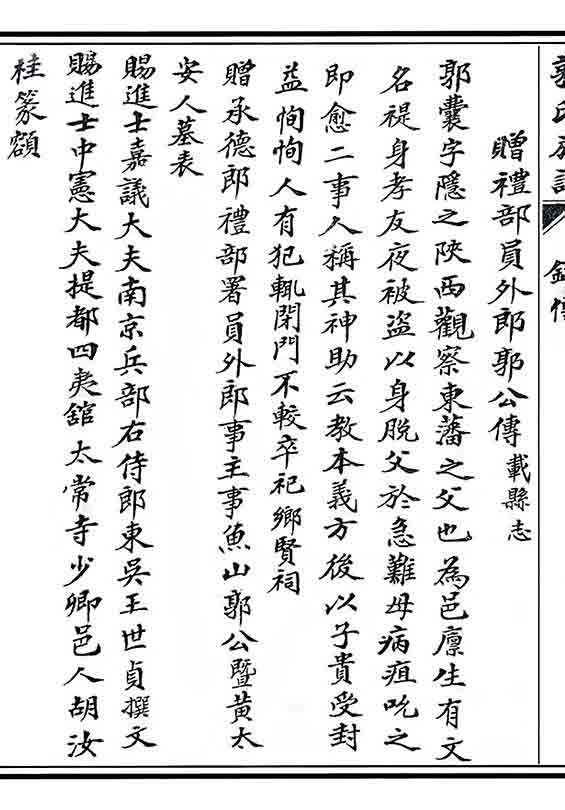 郭氏族譜
錄傳
贈禮部員外郎郭公傳載縣志
郭囊字隱之陝西觀察東藩之父也為邑廩生有文
名禔身孝友夜被盜以身脫父於急難母病疽吮之
即愈二事人稱其神助云教本義方後以子貴受封
益恂恂人有犯輒閉門不較卒祀鄉賢祠
贈承德郎禮部署員外郎事主事魚山郭公暨黃太
安人墓表
賜進士嘉議大夫南京兵部右侍郎東吳王世貞撰文
賜進士中憲大夫提都四夷舘太常寺少卿邑人胡汝
桂篆額